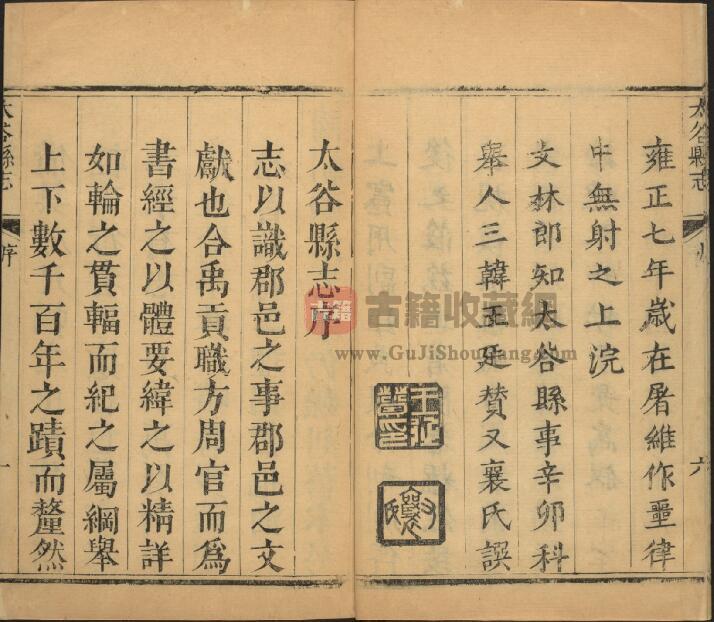 雍正七年歲在屠維作噩律
中無射之上浣
文林郎知太谷縣事辛卯科
舉人三韓王廷贊又襄氏譔
太谷縣志
六
太谷縣志序
志以識郡邑之事郡邑之文
獻也合禹貢職方周官而為
書經之以體要緯之以精詳
如輪之貫輻而紀之屬綱舉
上下數千百年之蹟而釐然
太谷縣志
序
一
古籍
古籍收藏網
www.GuJiShouCang.com